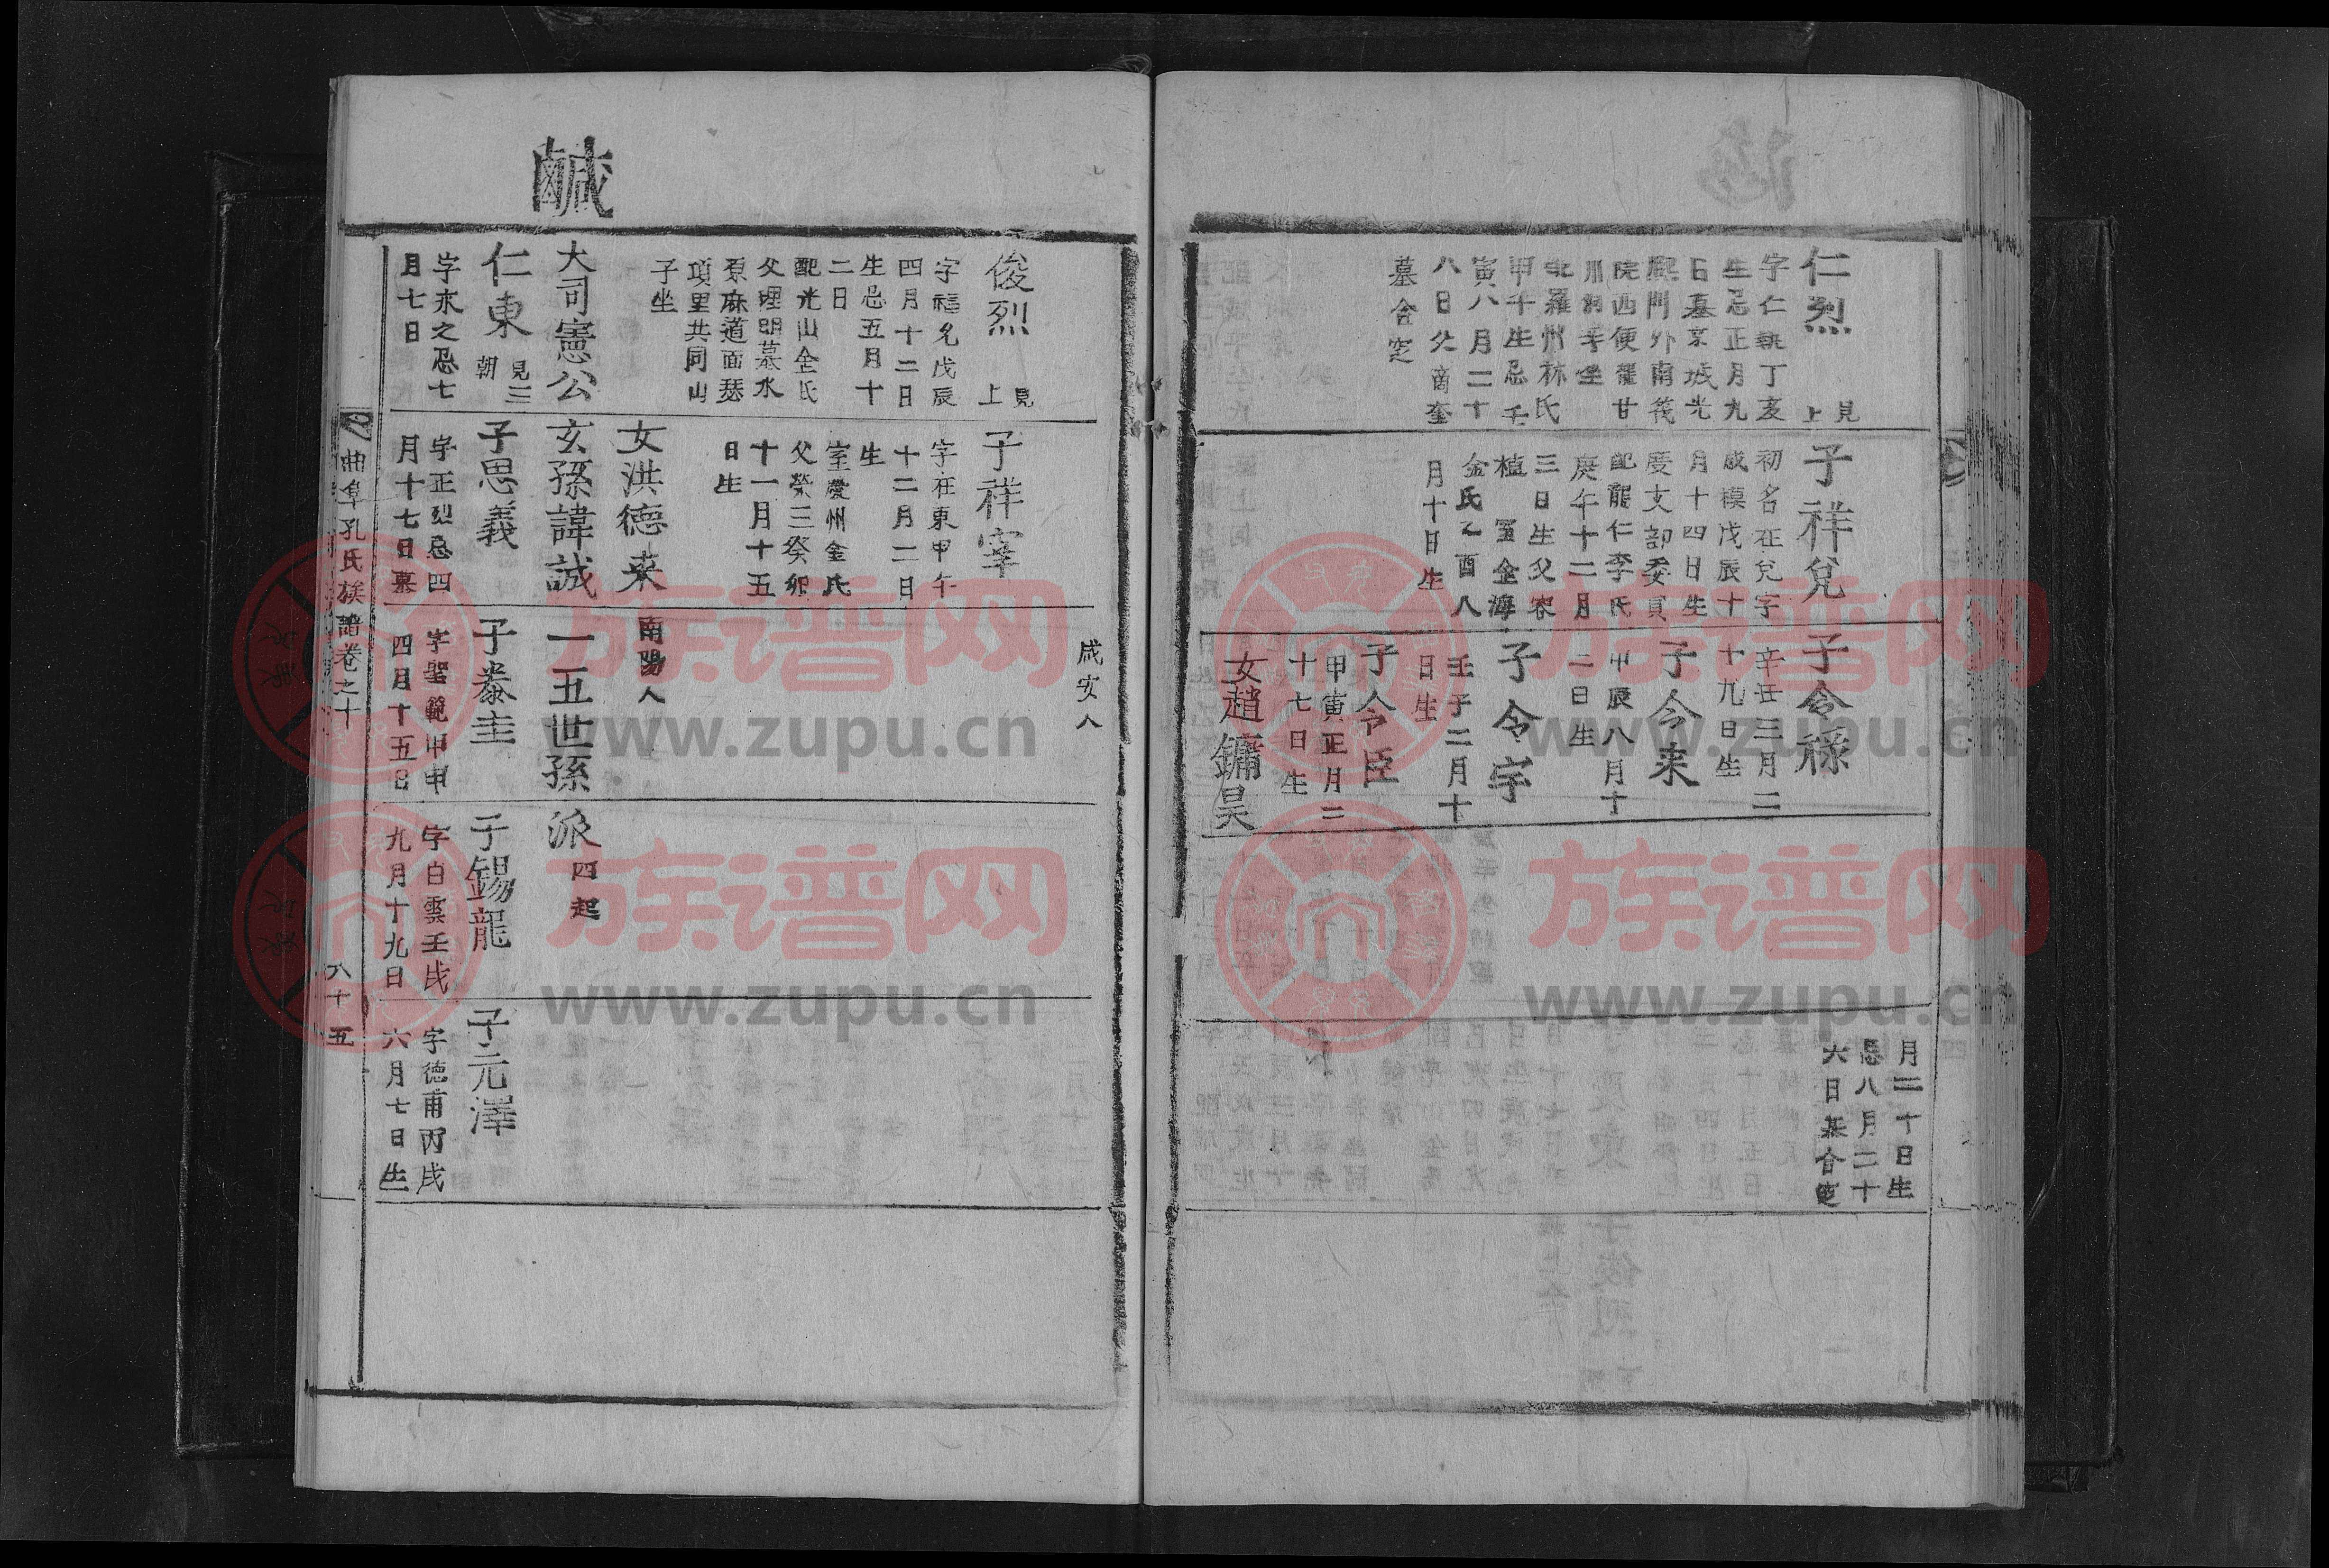 仁烈 見上
字仁執丁亥
生忌正月九
日墓京城光
熙門外南筏
院西便龍甘
川洞辛坐
配羅州林氏
甲午生忌壬
寅八月二十
八日父商奎
墓合窆
子祥兌
初名在兌字
成模戊辰十
月十四日生
度支部委員
配龍仁李氏
庚午十二月
三日生父容
植 室金海
金氏乙酉八
月十日生
子令祿
辛丑三月二
十九日生
子令来
甲辰八月十
二日生
子令宇
壬子二月十
日生
子令臣
甲寅正月二
十七日生
女趙鏞昊
月二十日生
忌八月二十
六日墓合窆
咸安人
俊烈 見上
字福允戊辰
四月十二日
生忌五月十
二日
配光山金氏
父理明墓水
原麻道面瑟
項里共同山
子坐
子祥宰
字在東甲午
十二月二日
生
室慶州金氏
父榮三癸卯
十一月十五
日生
女洪德来
南陽人
鹹
大司憲公玄孫諱誠一五世孫派 四起
仁東 見三朝
字来之忌七
月七日
子思義
字正烈忌四
月十七日墓
子泰圭
字聖範甲申
四月十五日
子錫龍
字白雲壬戌
九月十九日
子元澤
字德甫丙戌
六月七日生
曲阜孔氏族譜卷之十
八十五
族谱网
www.zupu.cn
族谱网
www.zupu.cn
族谱网
www.zupu.cn
族谱网
www.zupu.cn